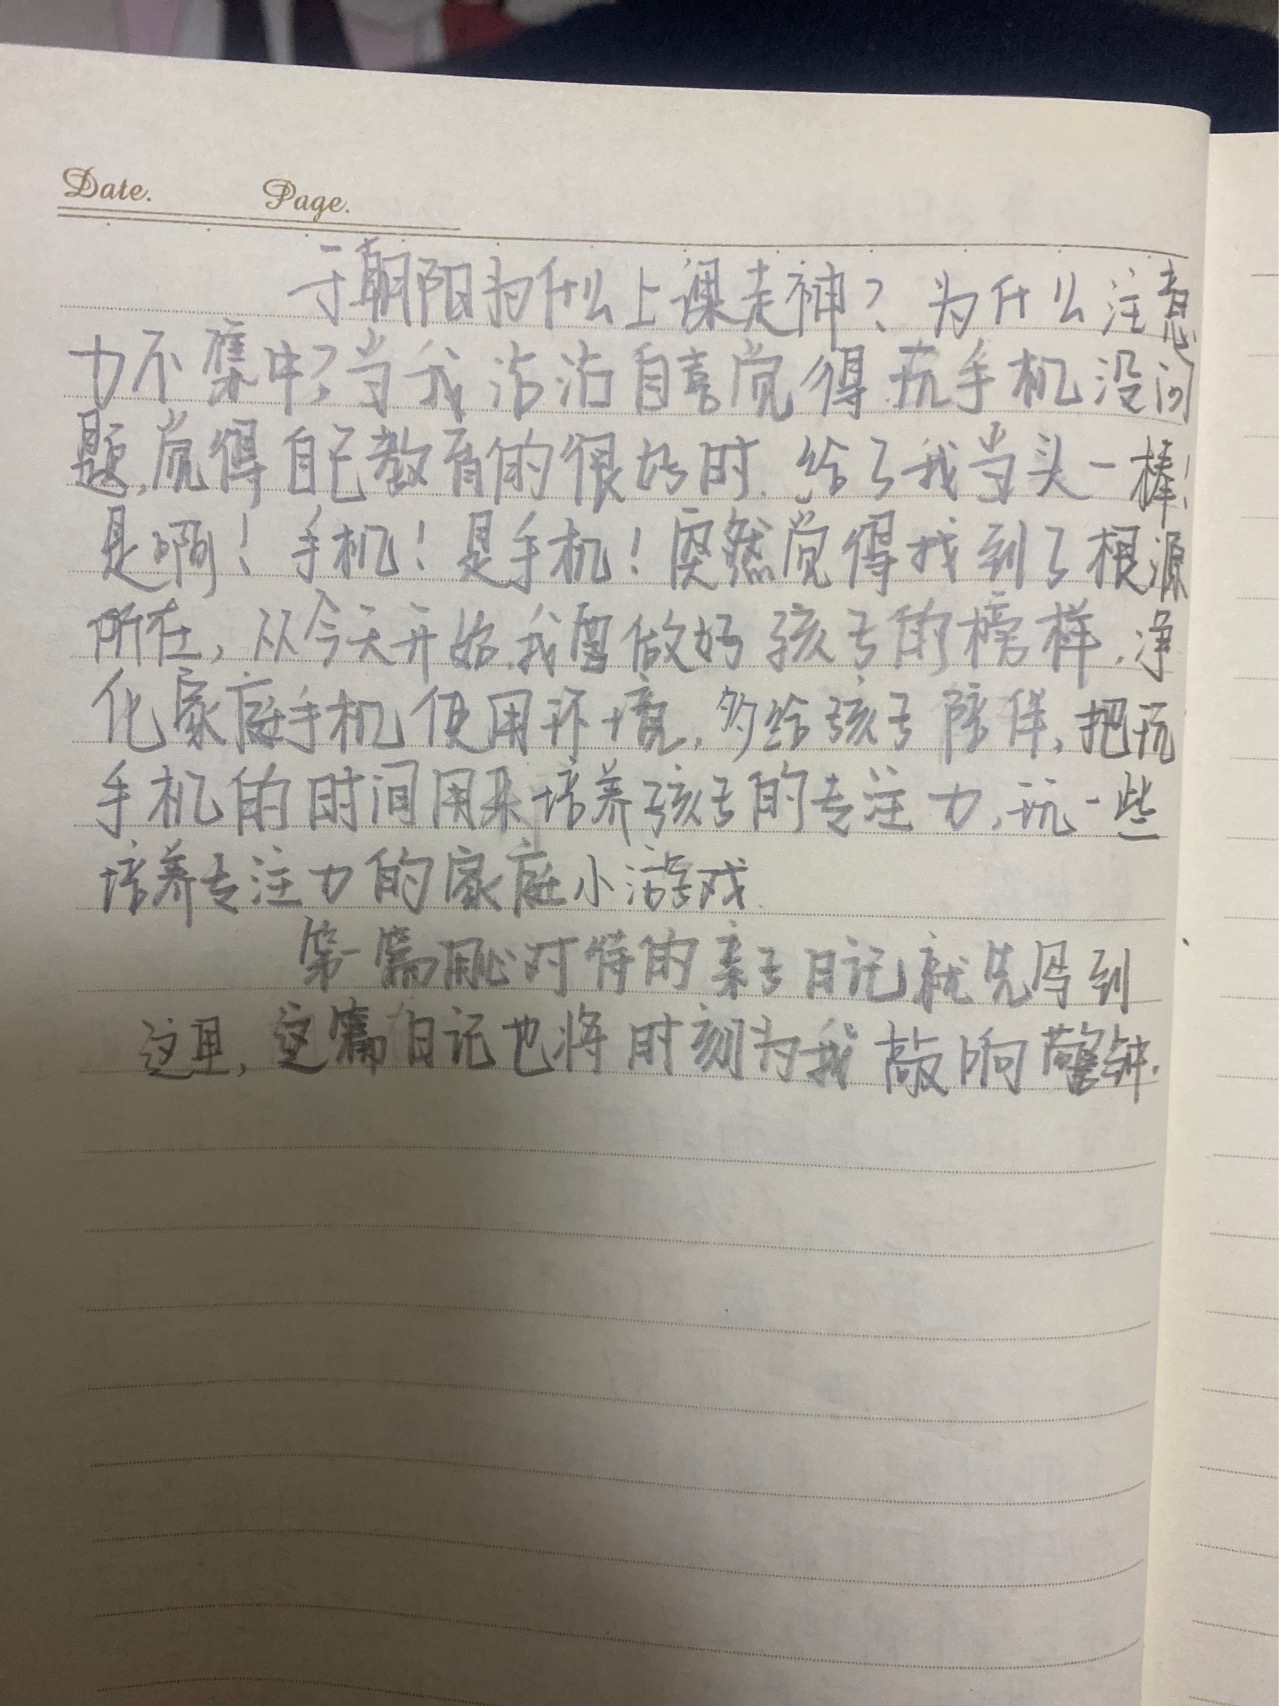 Date. Page.
于朝阳为什么上课走神？为什么注意
力不集中？当我沾沾自喜觉得玩手机没问
题，觉得自己教育的很好时，给了我当头一棒！
是啊！手机！是手机！突然觉得找到了根源
所在，从今天开始，我要做好孩子的榜样，净
化家庭手机使用环境，多给孩子陪伴，把玩
手机的时间用来培养孩子的专注力，玩一些
培养专注力的家庭小游戏.
第一篇用心对待的亲子日记就先写到
这里，这篇日记也将时刻为我敲响警钟.